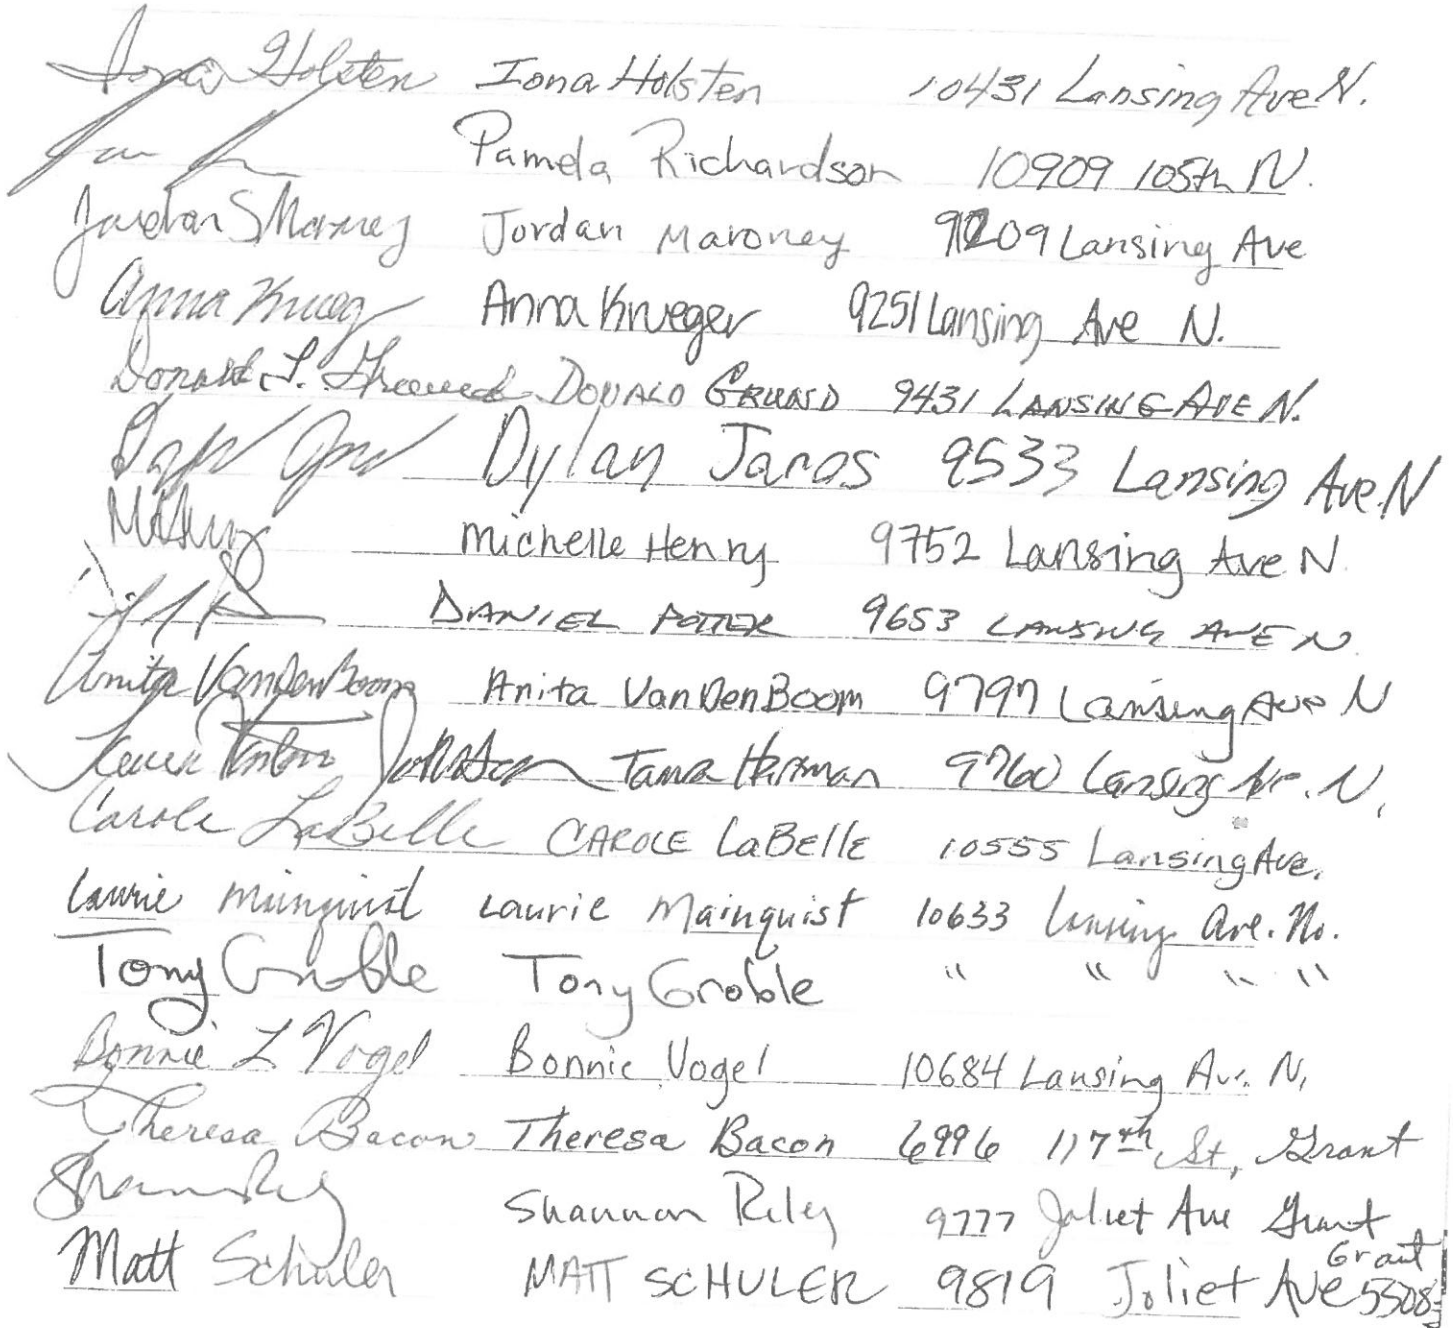 Iona Holsten Iona Holsten 10431 Lansing Ave N.
Pamela Richardson 10909 105th N.
Jordan S Maroney Jordan Maroney 9209 Lansing Ave
Anna Krueg Anna Krueger 9251 Lansing Ave N.
Donald DONALD GRUND 9431 LANSING AVE N.
Dylan Jaros 9533 Lansing Ave. N
Michelle Henry 9752 Lansing Ave N
DANIEL POTTER 9653 LANSING AVE N
Anita VanDenBoom Anita VanDenBoom 9797 Lansing Ave N
Johnson Tama Hartman 9760 Lansing Av. N.
Carole LaBelle CAROLE LaBellE 10555 Lansing Ave.
Laurie Mainquist Laurie Mainquist 10633 Lansing Ave. No.
Tony Groble Tony Groble " " " "
Bonnie L Vogel Bonnie Vogel 10684 Lansing Av. N,
Theresa Bacon Theresa Bacon 6996 117th St, Grant
Shannon Riley 9777 Joliet Ave Grant
Matt Schuler MATT SCHULER 9819 Joliet Ave Grant 5508